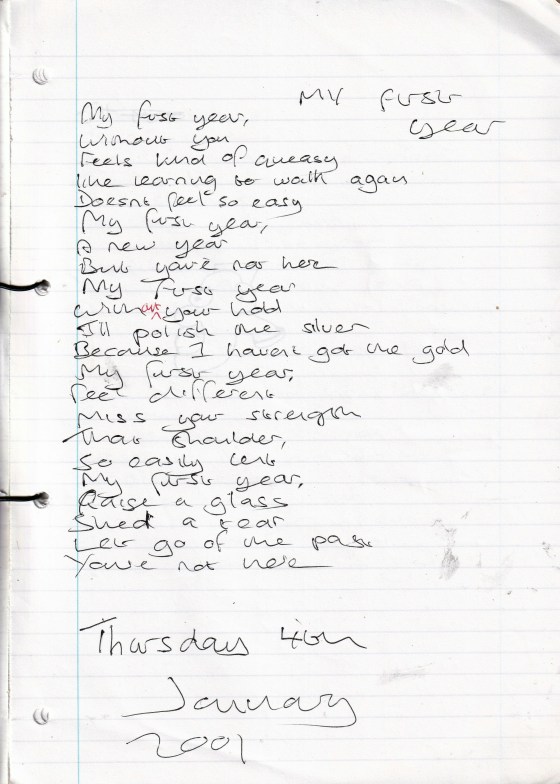 My first
year
My first year,
Without you
Feels kind of queasy
like learning to walk again
Doesnt feel so easy
My first year,
A new year
But you're not here
My First year
Without your hold
I'll polish the silver
Because I havent got the gold
My first year,
Feel different
Miss your strength
That Shoulder,
So easily lent
My first year,
Raise a glass
Shed a tear
Let go of the past
You're not here
Thursday 4th
January
2001